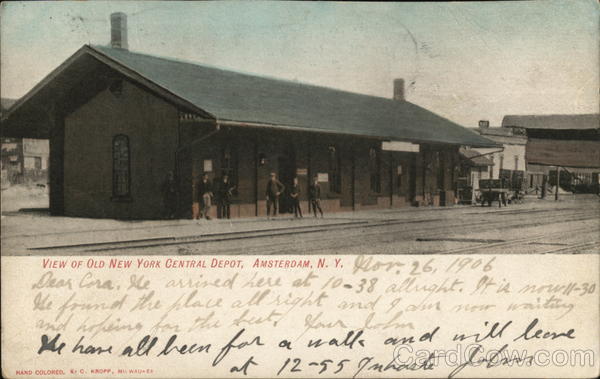 VIEW OF OLD NEW YORK CENTRAL DEPOT, AMSTERDAM, N. Y. Nov. 26, 1906
Dear Cora. We arrived here at 10-38 allright. It is now 11-30
We found the place all right and I am now waiting
and hoping for the best. Your John
We have all been for a walk and will leave
at 12-55 In haste John
HAND COLORED, E. C. KROPP, MILWAUKEE
CardCow.com